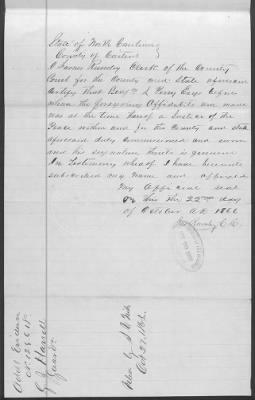 State of North Carolina
County of Carteret
I James Rumley Clerk of the County
Court for the County and State aforesaid
certify that Benj L Perry Esqr before
whom the foregoing Affidavits are made
was at the time thereof a Justice of the
Peace within and for the County and State
aforesaid duly commissioned and sworn
and his signature thereto is genuine
In Testimony whereof I have hereunto
subscribed my name and affixed
my official seal
on this the 22nd day
of October AD 1866
Jas Rumley C.C.
Addl Evidence
Guardn
Filed by
Oct 27, 1866